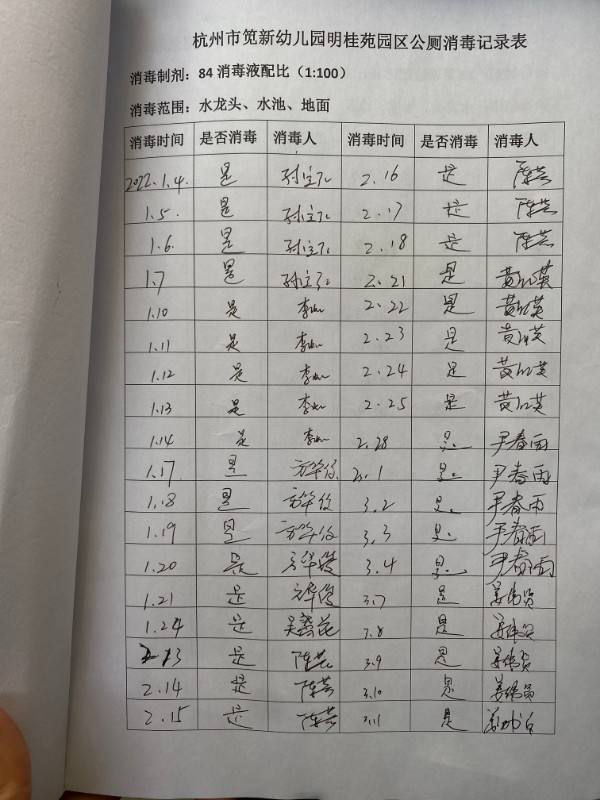 杭州市笕新幼儿园明桂苑园区公厕消毒记录表
消毒制剂：84 消毒液配比（1:100）
消毒范围：水龙头、水池、地面
消毒时间 是否消毒 消毒人 消毒时间 是否消毒 消毒人
2022.1.4. 是 2.16 是 陈芸
1.5. 是 2.17 是 陈芸
1.6. 是 2.18 是 陈芸
1.7 是 2.21 是
1.10 是 2.22 是
1.11 是 2.23 是
1.12 是 2.24 是
1.13 是 2.25 是
1.14 是 2.28 是. 尹春雨
1.17 是 3.1 是. 尹春雨
1.18 是 3.2 是. 尹春雨
1.19 是 3.3 是. 尹春雨
1.20 是 3.4 是. 尹春雨
1.21 是 3.7 是
1.24 是 3.8 是
2.13 是 陈芸 3.9 是
2.14 是 陈芸 3.10 是
2.15 是 陈芸 3.11 是